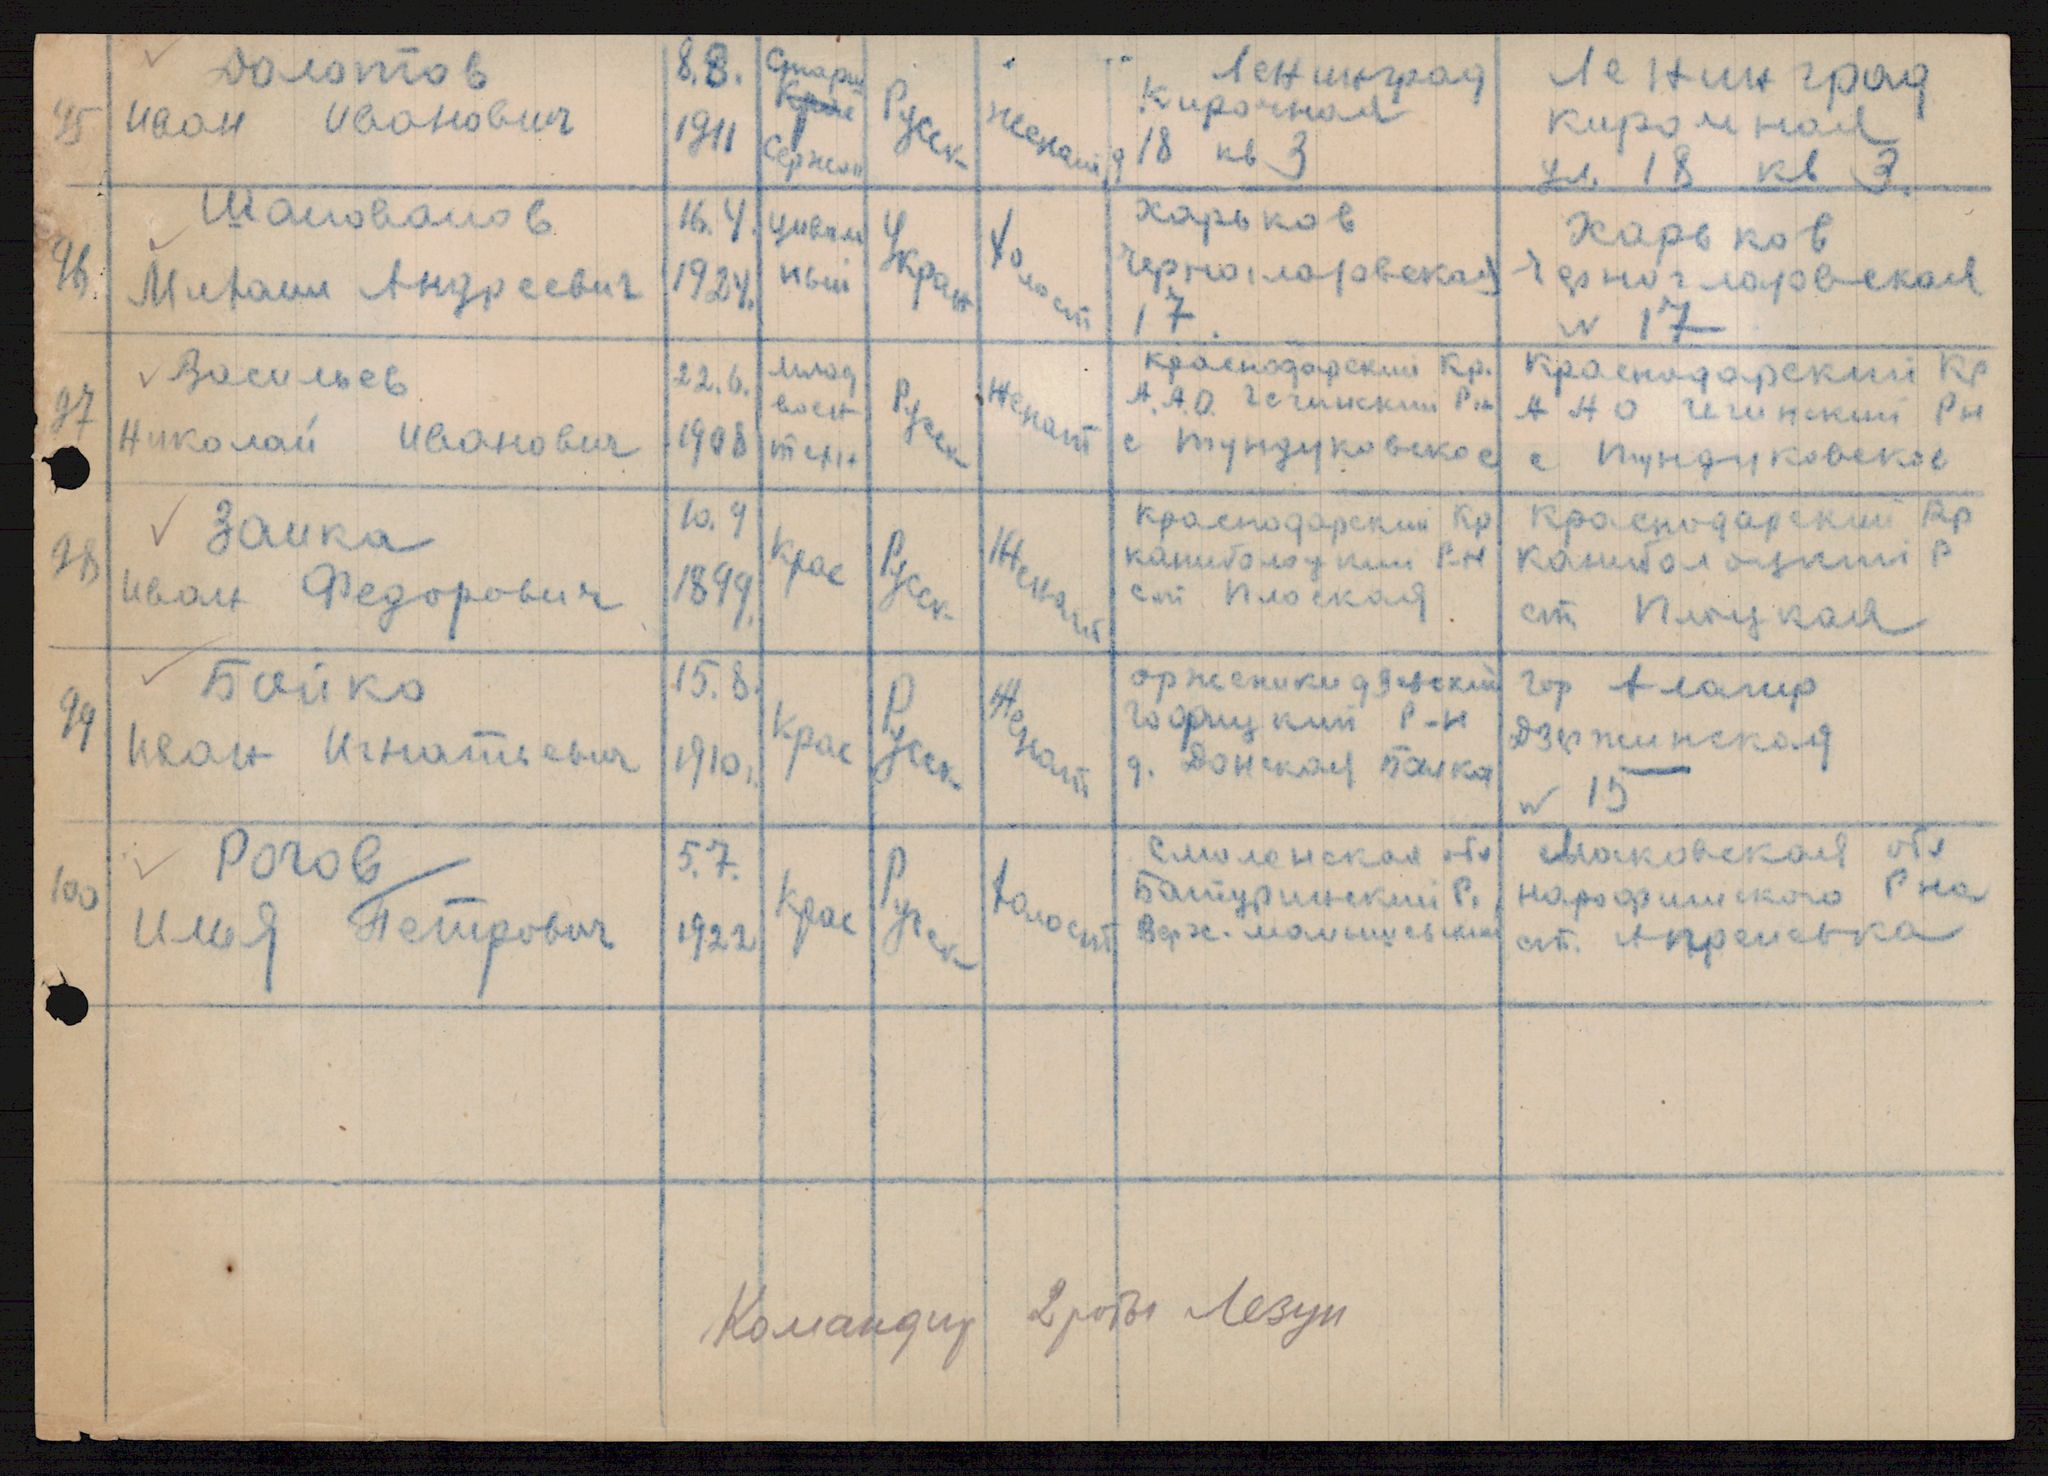 95 Долотов 8.8. Старш Ленинград Ленинград
Иван Иванович 1911 Сержан Русск женат Кирочная Кирочная
д 18 кв 3 ул. 18 кв 3.
96 Шаповалов 16.4. цивил Украи Холост Харьков Харьков
Михаил Андреевич 1924. ный Черноглазовская Черноглазовская
17. № 17
97 Васильев 22.6. млад Русск Женат Краснодарский Кр. Краснодарский Кр
Николай Иванович 1908 воен А.А.О. Гегинский Р-н А А О Гегинский Рн
техн с Штундуковское с Штундуковское
98 Заика 10.9 Крас Русск Женат Краснодарский Кр Краснодарский Кр
Иван Федорович 1899. каниболоцкий Р-Н Каниболоцкий Р
ст Плоская ст Плоцкая
99 Бойко 15.8. Крас Русск Женат орженикидзевский гор Алагир
Иван Игнатьевич 1910. Р-н Дзержинская
д. Донская Балка № 15
100 Рогов 5.7. Крас Русск Холост Смоленская обл Московская обл
Илья Петрович 1922 Батуринский Р. нарофимского Рна
Верх. ст. Апрелевка
Командир 2 роты Лезун